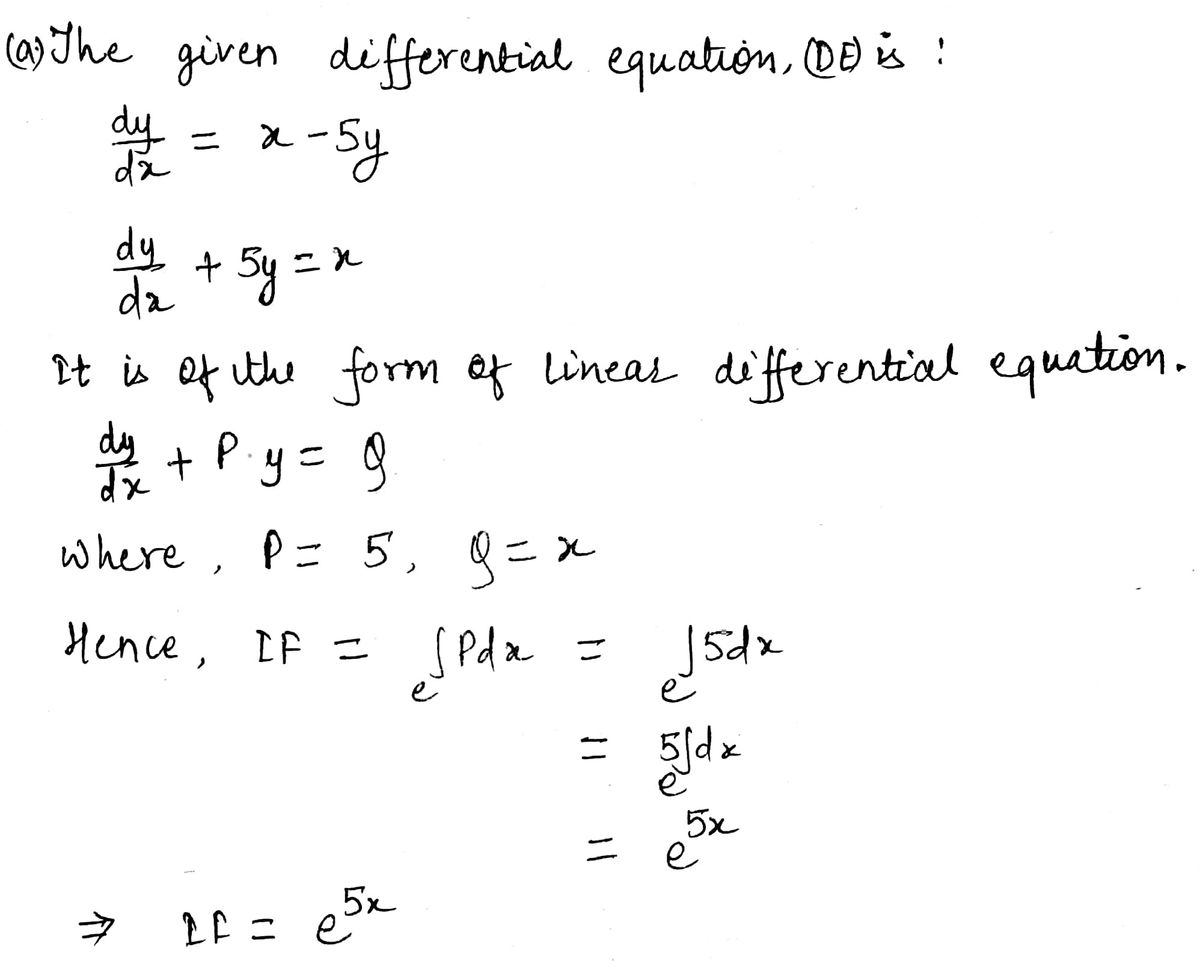 (a) The given differential equation, (DE) is :
dy/dx = x - 5y
dy/dx + 5y = x
It is of the form of linear differential equation.
dy/dx + P.y = Q
where, P = 5, Q = x
Hence, IF = e^∫Pdx = e^∫5dx
= e^5∫dx
= e^5x
⇒ IF = e^5x